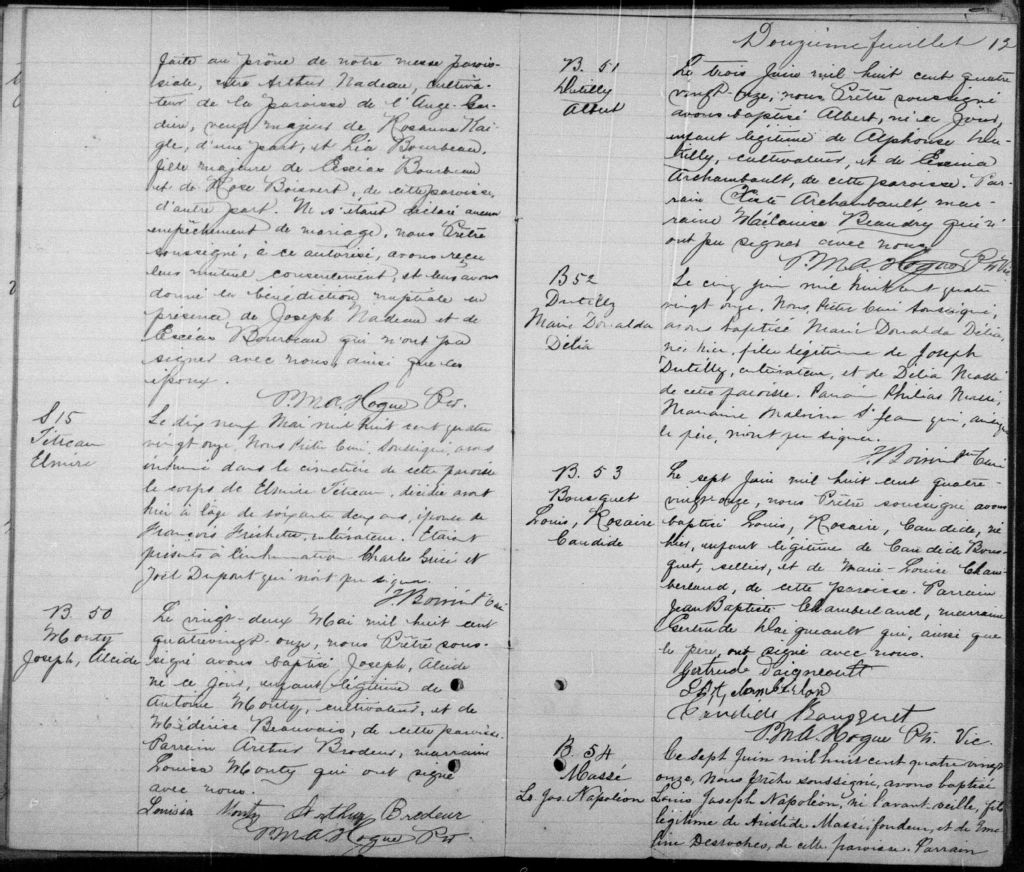 faite au prône de notre messe parois-
siale, entre Arthur Nadeau, cultiva-
teur de la paroisse de l'Ange-Gar-
dien, veuf majeur de Rosanna Dai-
gle, d'une part, et Léa Bourbeau,
fille majeure de Escias Bourbeau
et de Rose Boisvert, de cette paroisse,
d'autre part. Ne s'étant déclaré aucun
empêchement de mariage, nous Prêtre
soussigné, à ce autorisé, avons reçu
leur mutuel consentement, et leur avons
donné la bénédiction nuptiale en
présence de Joseph Nadeau et de
Escias Bourbeau qui n'ont pu
signer avec nous, ainsi que les
époux.
P.M.A. Hogue Ptr.
S 15
Tétreau
Elmire
Le dix neuf Mai mil huit cent quatre
vingt onze, Nous Prêtre Curé, Soussigné, avons
inhumé dans le cimetière de cette paroisse
le corps de Elmire Tétreau, décédée avant
hier à l'âge de soixante deux ans, épouse de
François Frichette, cultivateur. Etaient
présents à l'inhumation Charles Guié et
Joël Dupont qui n'ont pu signer.
J Boivin Curé
B. 50
Monty
Joseph, Alcide
Le vingt-deux Mai mil huit cent
quatrevingt onze, nous Prêtre sous-
signé avons baptisé Joseph, Alcide
né ce jour, enfant légitime de
Antoine Monty, cultivateur, et de
Médérise Beauvais, de cette paroisse.
Parrain Arthur Brodeur, marraine
Louisa Monty qui ont signé
avec nous.
Louisia Monty Arthur Brodeur
P.M.A. Hogue Ptr
Douzième feuillet 12
B. 51
Dutilly
Albert
Le trois Juin mil huit cent quatre
vingt onze, nous Prêtre soussigné
avons baptisé Albert, né ce jour,
enfant légitime de Alphonse Du-
tilly, cultivateur, et de Exima
Archambault, de cette paroisse. Par-
rain Xiste Archambault, mar-
raine Mélanise Beaudry qui n'
ont pu signer avec nous.
P.M.A. Hogue Ptr Vic
B 52
Dutilly
Marie Donalda
Délia
Le cinq juin mil huit cent quatre
vingt onze, Nous, Prêtre Curé Soussigné,
avons baptisé Marie Donalda Délia,
née hier, fille légitime de Joseph
Dutilly, cultivateur, et de Délia Massé
de cette paroisse. Parrain Philias Massé,
Marraine Malvina St Jean qui, ainsi que
le père, n'ont pu signer.
J Boivin ptre Curé
B. 53
Bousquet
Louis, Rosaire
Candide
Le sept Juin mil huit cent quatre-
vingt-onze, nous Prêtre soussigné avons
baptisé Louis, Rosaire, Candide, né
hier, enfant légitime de Candide Bous-
quet, sellier, et de Marie-Louise Cham-
berland, de cette paroisse. Parrain
Jean Baptiste Chamberland, marraine
Gertrude Daigneault qui, ainsi que
le père, ont signé avec nous.
Gertrude Daigneault
Candide Bousquet
P.M.A. Hogue Ptr. Vic.
B 54
Massé
Ls Jos. Napoléon
Ce sept Juin mil huit cent quatre vingt
onze, Nous Prêtre soussigné, avons baptisé
Louis Joseph Napoléon, né l'avant-veille, fils
légitime de Aristide Massé fondeur, et de Eme-
line Desroches, de cette paroisse. Parrain